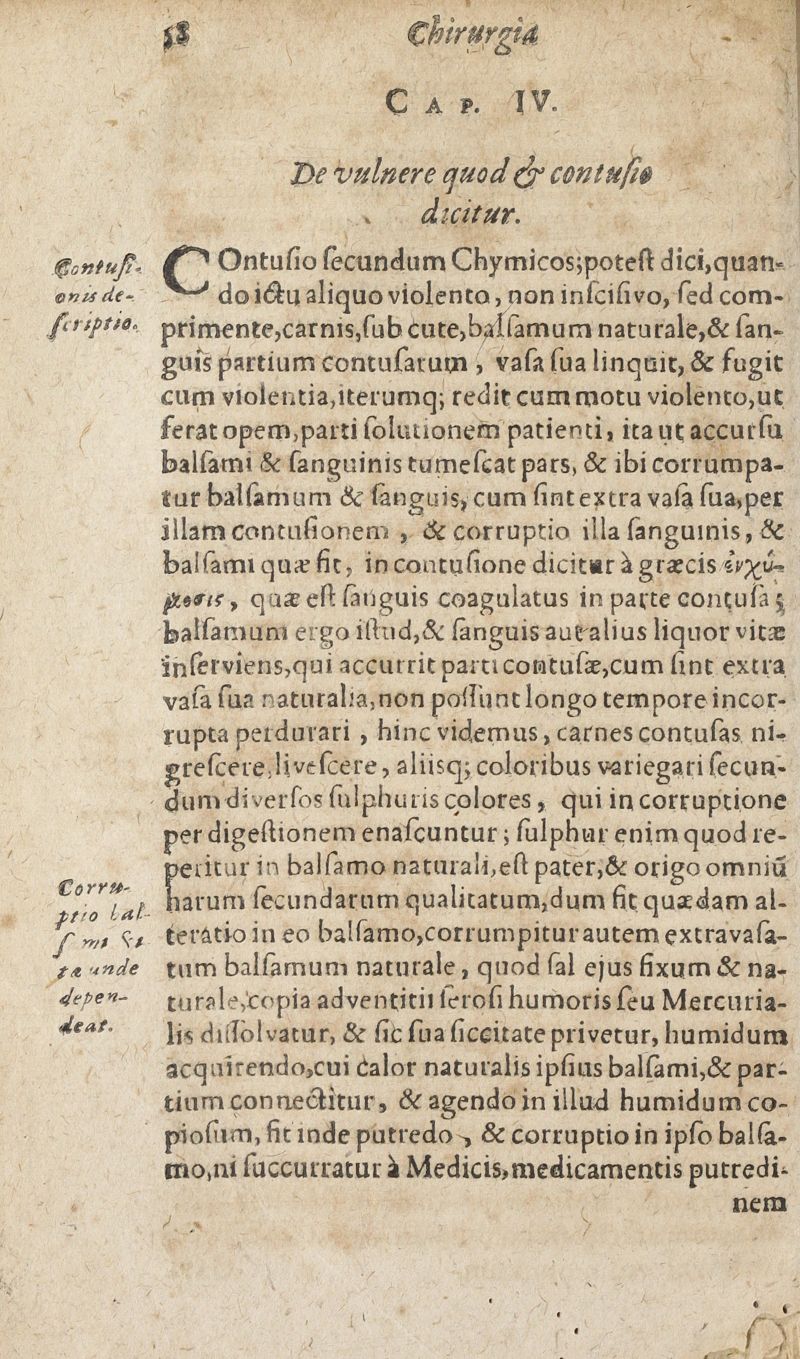 58 Chirurgia
CAP. IV.
De vulnere quod & contusio
dicitur.
Contusi-
onis de-
scriptio.
COntuſio ſecundum Chymicos;poteſt dici,quan-
do ictu aliquo violento, non inſciſivo, ſed com-
primente,carnis,ſub cute,balſamum naturale,& ſan-
guis partium contuſarum, vaſa ſua linquit, & fugit
cum violentia,iterumq; redit cum motu violento,ut
ferat opem,parti ſolutionem patienti, ita ut accurſu
balſami & ſanguinis tumeſcat pars, & ibi corrumpa-
tur balſamum & ſanguis, cum ſint extra vaſa ſua,per
illam contuſionem, & corruptio illa ſanguinis, &
balſami quæ fit, in contuſione dicitur à græcis ἐνχύ-
μωσις, quæ eſt ſanguis coagulatus in parte contuſa;
balſamum ergo iſtud,& ſanguis aut alius liquor vitæ
inſerviens,qui accurrit parti contuſæ,cum ſint extra
vaſa ſua naturalia,non poſſunt longo tempore incor-
rupta perdurari, hinc videmus, carnes contuſas ni-
greſcere,liveſcere, aliisq; coloribus variegari ſecun-
dum diverſos ſulphuris colores, qui in corruptione
per digeſtionem enaſcuntur; ſulphur enim quod re-
peritur in balſamo naturali,eſt pater,& origo omniū
harum ſecundarum qualitatum,dum fit quædam al-
teratio in eo balſamo,corrumpitur autem extravaſa-
tum balſamum naturale, quod ſal ejus fixum & na-
turale,copia adventitii ſeroſi humoris ſeu Mercuria-
lis diſſolvatur, & ſic ſua ſiccitate privetur, humidum
acquirendo,cui calor naturalis ipſius balſami,& par-
tium connectitur, & agendo in illud humidum co-
pioſum, fit inde putredo, & corruptio in ipſo balſa-
mo,ni ſuccurratur à Medicis,medicamentis putredi-
Corru-
ptio bal-
depen-
deat.
nem